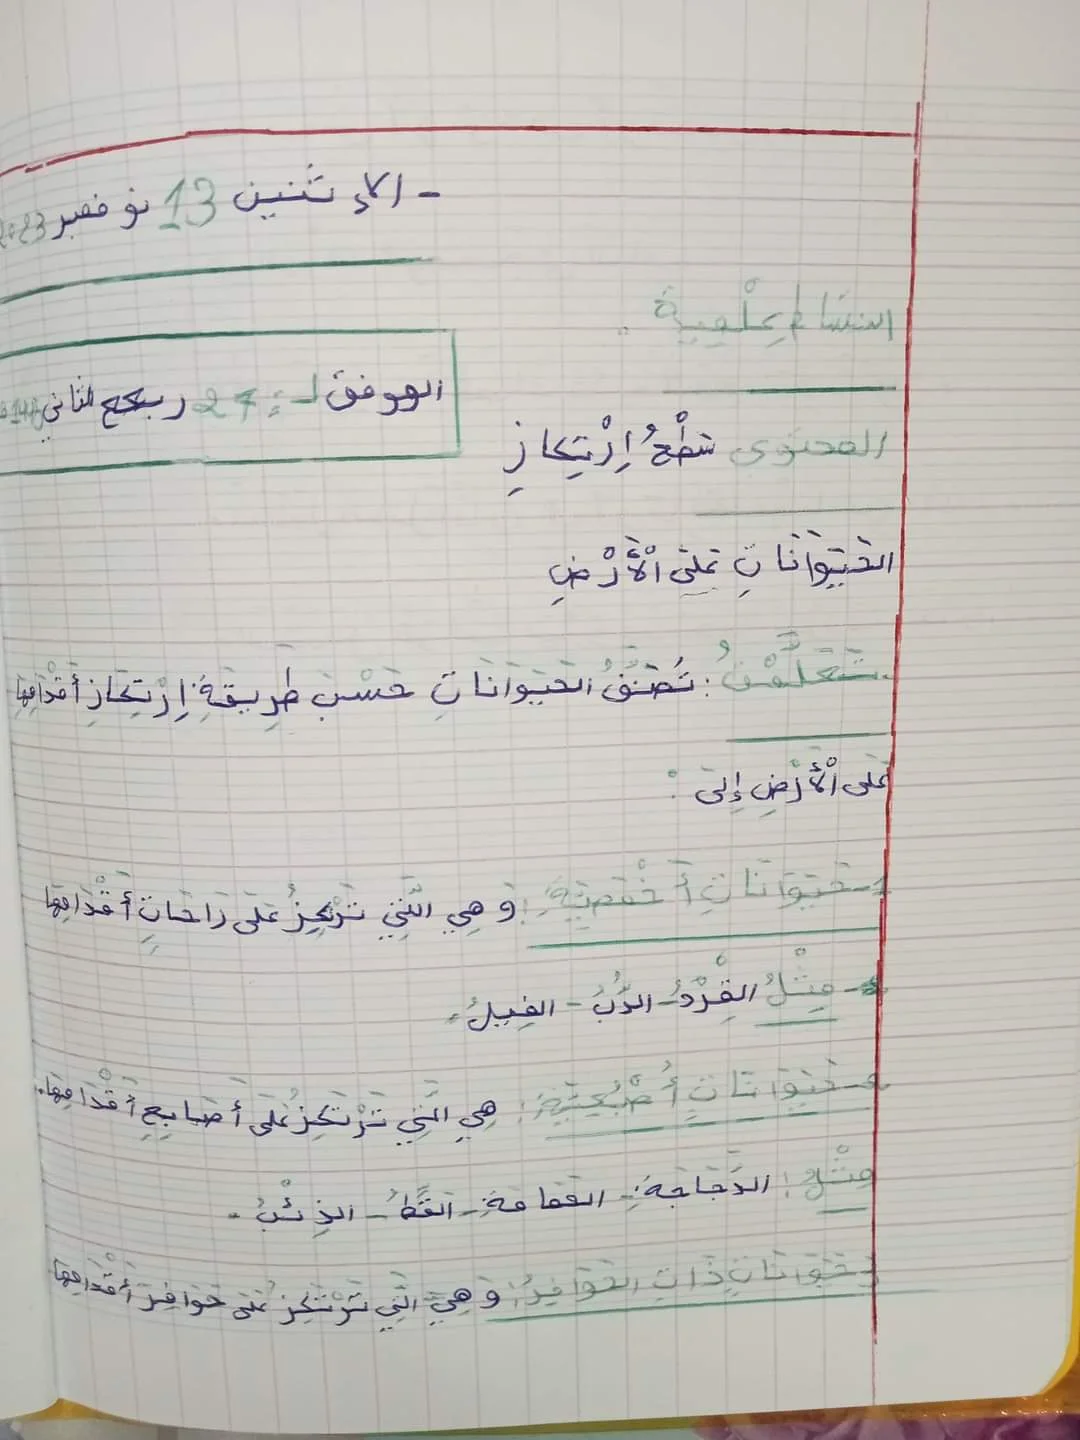 - الإثنين 13 نوفمبر 2023
النشاط عِلْمِية ..
الموفق لـ: 27 ربيع الثاني
المحتوى سَطْحُ اِرْتِكازِ
الحَيَوَانَاتِ عَلَى الْأَرْضِ
تَعَلَّمْتُ : تُصَنَّفُ الحَيَوَانَاتِ حَسْبَ طَرِيقَةِ اِرْتِكَازِ أَقْدَامِهَا
عَلَى الْأَرْضِ إِلَى :
- حَيَوَانَاتِ أَخْمَصِيَّةِ : وَهِي الَّتِي تَرْتَكِزُ عَلَى رَاحَاتِ أَقْدَامِهَا
- مِثْلُ القِرْدُ - الدُّبُ - الفِيلُ .
- حَيَوَانَاتِ أُصْبُعِيَّةِ : هِيَ الَّتِي تَرْتَكِزُ عَلَى أَصَابِعِ أَقْدَامِهَا .
مِثْلُ : الدَّجَاجَةِ - النعامةِ - القِطُ - الذِئْبُ .
- حَيَوَانَاتِ ذَاتِ الحَوَافِرُ : وَهِيَ الَّتِي تَرْتَكِزُ عَلَى حَوَافِرَ أَقْدَامِهَا